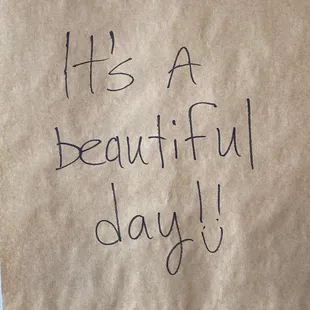 It's A
beautiful
day!!